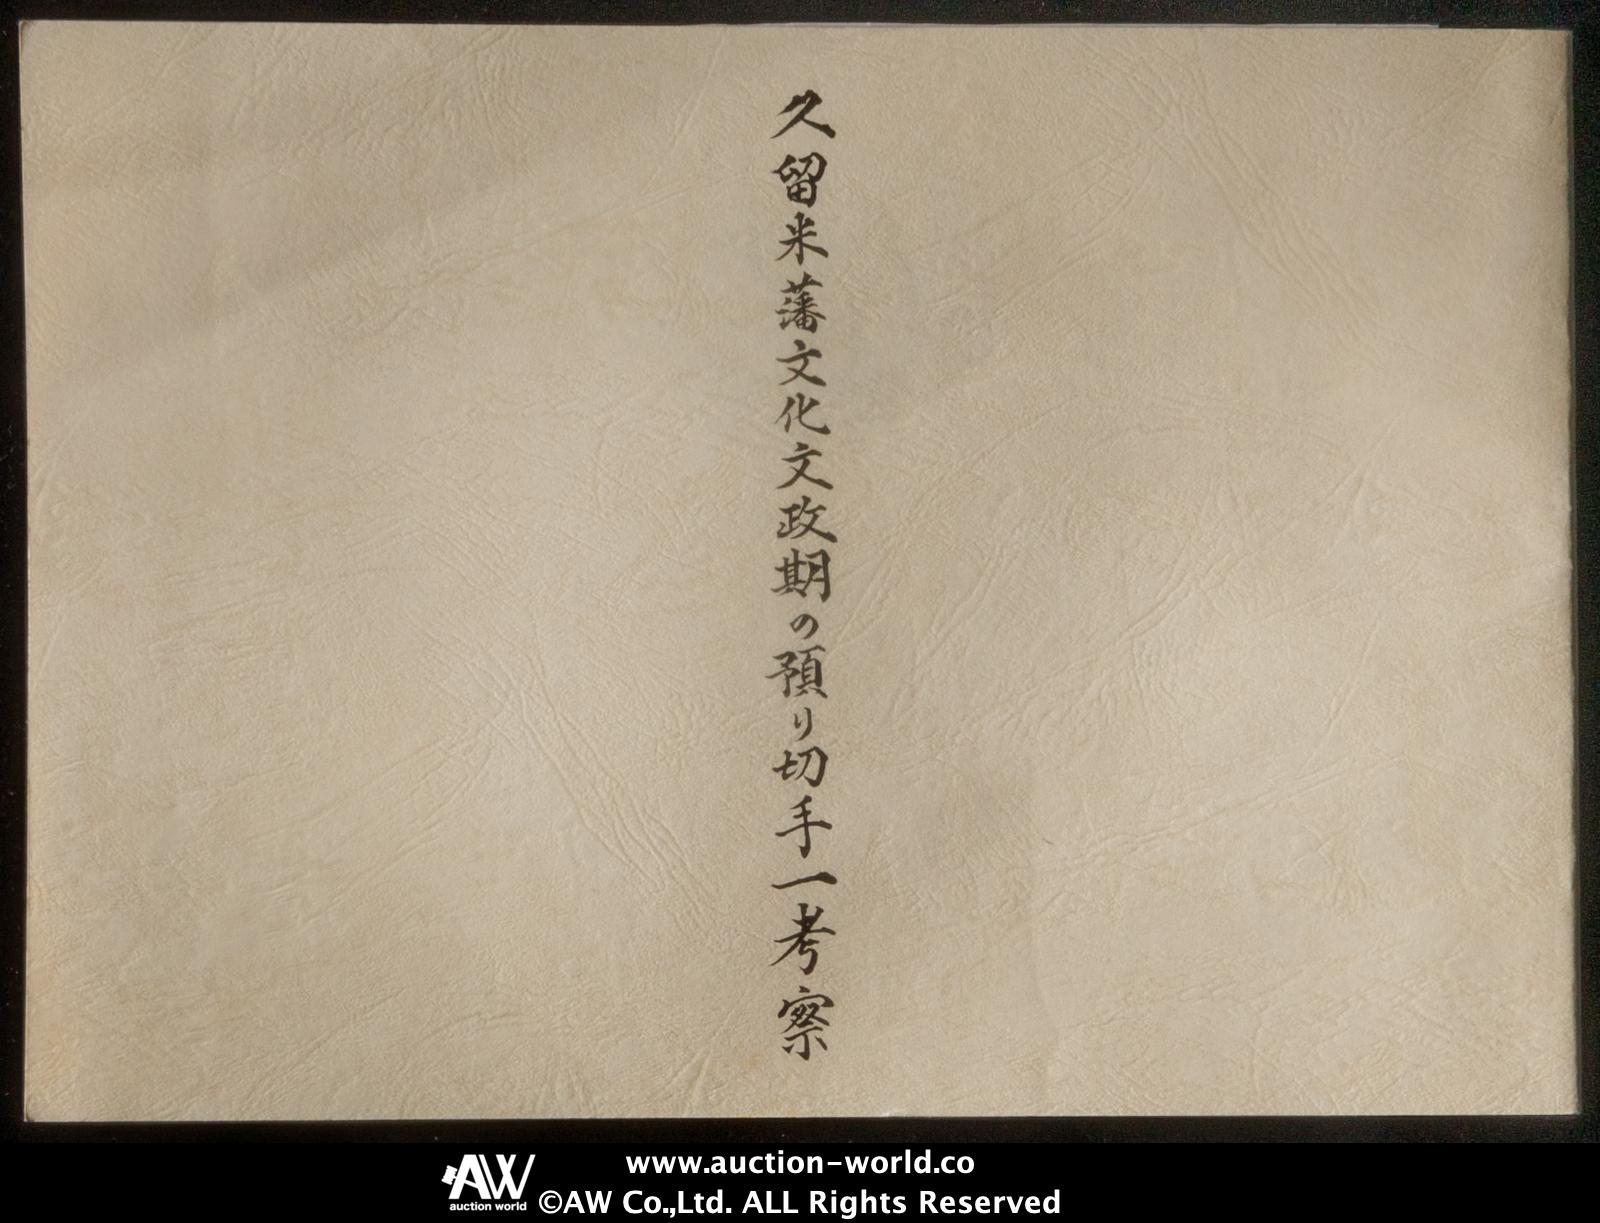 久留米藩文化文政期の預り切手一考察
AW
auction world
www.auction-world.co
©AW Co.,Ltd. ALL Rights Reserved